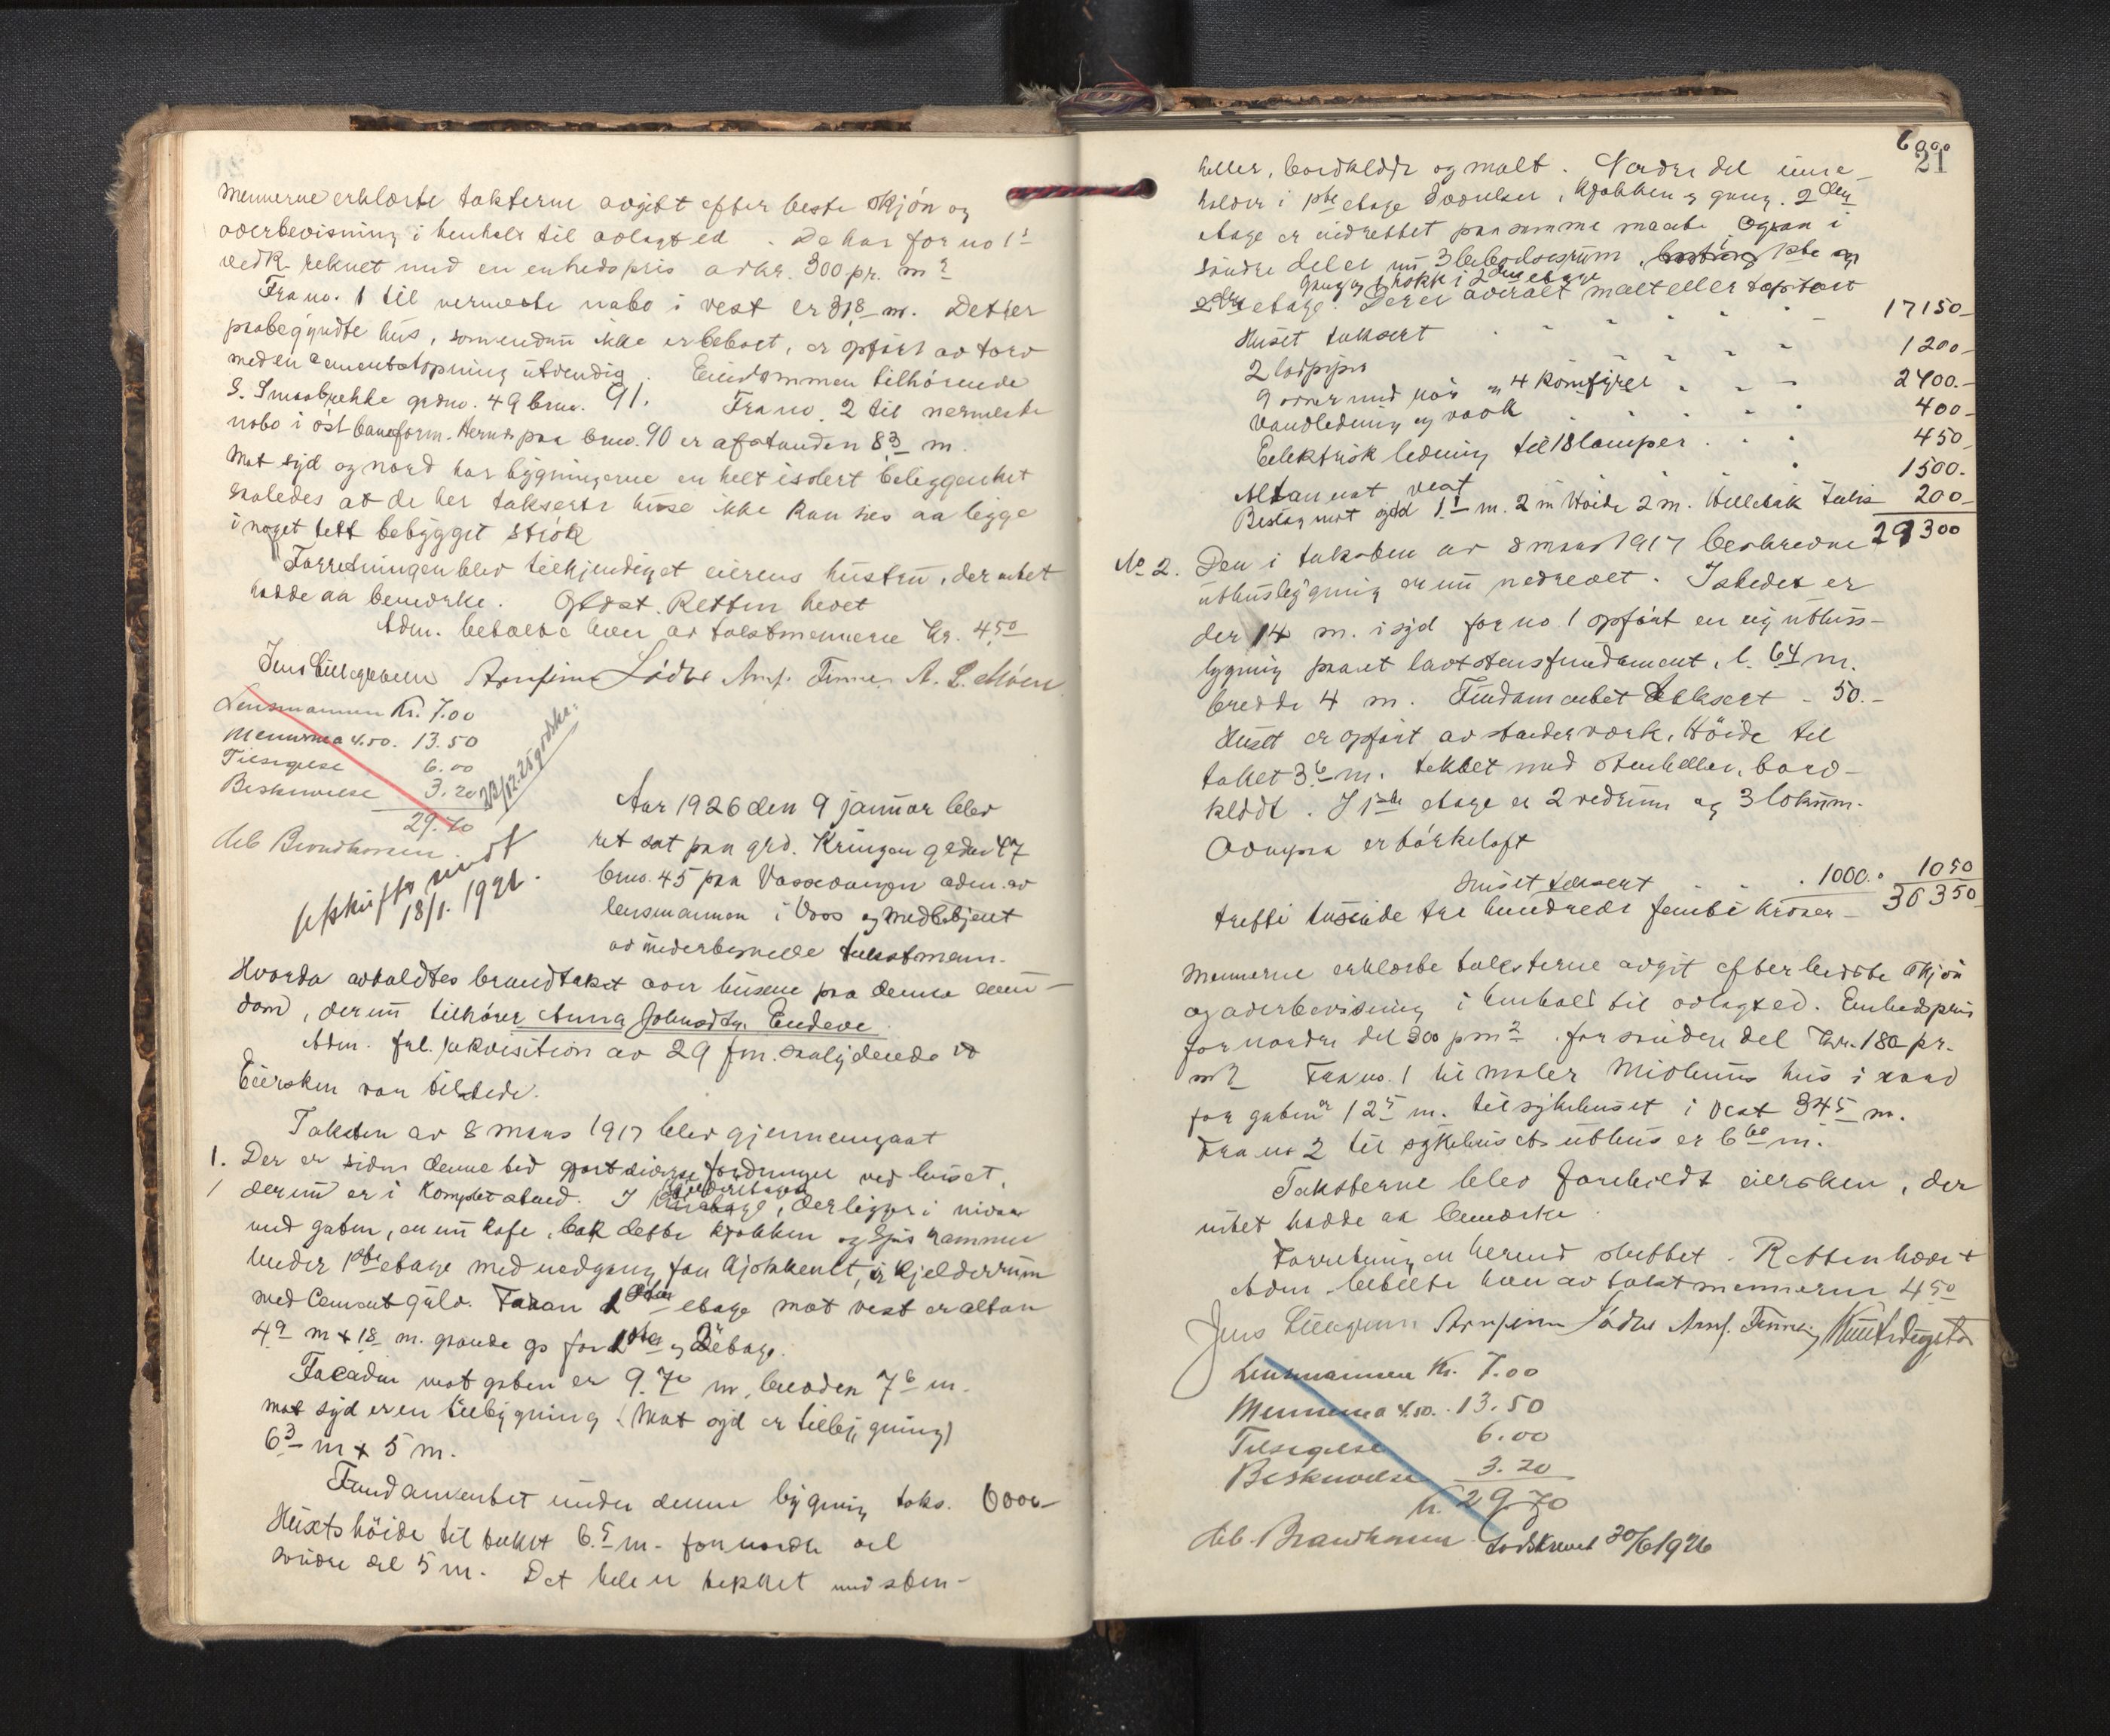 Mennerne erklærte taksterne avgit efter beste skjön og
overbevisning i henhold til avlagt ed. De har for no 1s
vedk. reknet med en enhedspris av kr. 300 pr. m2
Fra no. 1 til nermeste nabo i vest er 31,8 m. Dette
paabegyndte hus, som endnu ikke er beboet, er opfört av torv
med en cementstöpning utvendig. Eiendommen tilhörende
S. grdno. 49 brno. 91. Fra no. 2 til nermeste
nabo i öst baneform. paa brno. 90 er afstanden 8,3 m.
Mot syd og nord har bygningerne en helt isolert beliggenhet
saaledes at de her takserte huse ikke kan sies aa ligge
i noget tett bebygget strök
Forretningen blev tilkjendigjet eierens hustru, der intet
hadde aa bemerke. Oplæst. Retten hevet
Adm. betalte hver av takstmennerne kr. 4,50
Jens Lillegraven Arnfinn Lödve Arnf. Finne A. L. Möen
Lensmannen Kr. 7.00
Mennerne a 4.50. 13.50
Tilsigelse 6.00
Beskrivelse 3.20
29.70
deb Brandkassen
22/12.25 godskr.
avskrift sendt
18/1. 1926.
Aar 1926 den 9 januar blev
ret sat paa grd. Kringen grdno 47
brno. 45 paa Vossevangen adm. av
lensmannen i Voss og med betjent
av undertegnede takstmenn.
Hvorda avholdtes brandtakst over husene paa denne eien-
dom, der nu tilhører Anna Johnsdtr. Endeve
Adm. frl. rekvisition av 29 f.m. saalydende
Eiersken var tilstede.
Taksten av 8 mars 1917 blev gjennemgaat
1. Der er siden denne tid gjort diverse fordringer ved huset,
1 der nu er i komplet stand. I underetagen, der ligger i nivaa
med gaten, er nu kafe, bak dette kjökken og spiskammer
Under 1ste etage med nedgang fra kjökkenet, er kjelderrum
med Cementgulv. Foran etage mot vest er altan
4,9 m x 1,8 m. for 1ste og 2 etage.
Facaden mot gaten er 9.70 m, bredden 7,6 m.
mot syd er en tilbygning (Mot syd er tilbygning)
6,3 m x 5 m.
Fundamentet under denne bygning taks. 6000-
Husets höide til taket 6.5 m. for nordre del
söndre del 5 m. Det hele er tekket med sten-
6000
21
heller, bordklædt og malt. Nordre del inne-
holder i 1ste etage 2 værelser, kjökken og gang. 2den
etage er indrettet paa samme maate. Ogsaa i
söndre del er nu 3 beboelsesrum 1ste og
gang og kokk i 2den etage
2den etage. Der er overalt malt eller tapisert
Huset taksert 17150-
2 lodpiper 1200-
9 ovner med rör og 4 komfyrer 2400.-
Vandledning og vask 400-
Eelektrisk ledning til 18 lamper 450-
Altan mot vest 1500.
Beslag mot syd 1,1 m. 2 m Höide 2 m. Helletak Taks 200-
29300
No 2. Den i taksten av 8 mars 1917 beskrevne
uthusbygning er nu nedrevet. Istedet er
der 14 m. i syd for no 1 opfört en ny uthus-
bygning paa et lavt stensfundament, l. 6,4 m.
bredde 4 m. Fundamentet taksert - 50.-
Huset er opfört av staverværk. Höide til
taket 3,6 m. tekket med stenheller, bord-
klædt. I 1ste etage er 2 vedrum og 3 lokum.
Ovenpaa er törkeloft
Huset taksert 1000. 1050
30350
tretti tusinde tre hundrede femti kroner -
Mennerne erklærte taksterne avgit efter bedste skjön
og overbevisning i henhold til avlagt ed. Enhedspris
for nordre del 300 pr m2. for söndre del kr. 180 pr.
m2 Fra no. 1 til maler Midtuns hus i nord
for gaten er 12,5 m. til sykehuset i vest 34,5 m.
Fra no 2 til sykehusets uthus er 6,60 m.
Taksterne blev foreholdt eiersken, der
intet hadde aa bemerke.
Forretningen hermed sluttet. Retten hævet
Adm. betalte hver av takstmennerne 4,50
Jens Lillegraven Arnfinn Lödve Arnf. Finne
Lensmannen Kr. 7.00
Mennerne a 4.50. 13.50
Tilsigelse 6.00
Beskrivelse 3.20
kr. 29.70
deb. Brandkassen Godskrevet 30/6 1926